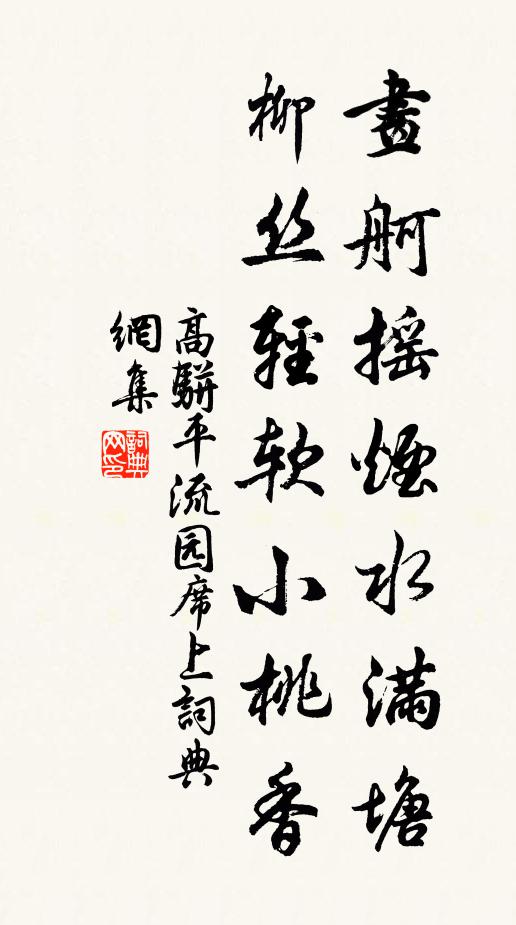 畫舸搖煙水滿塘
柳丝輕軟小桃香
高駢平流园席上詞典
網集
詞典
网印